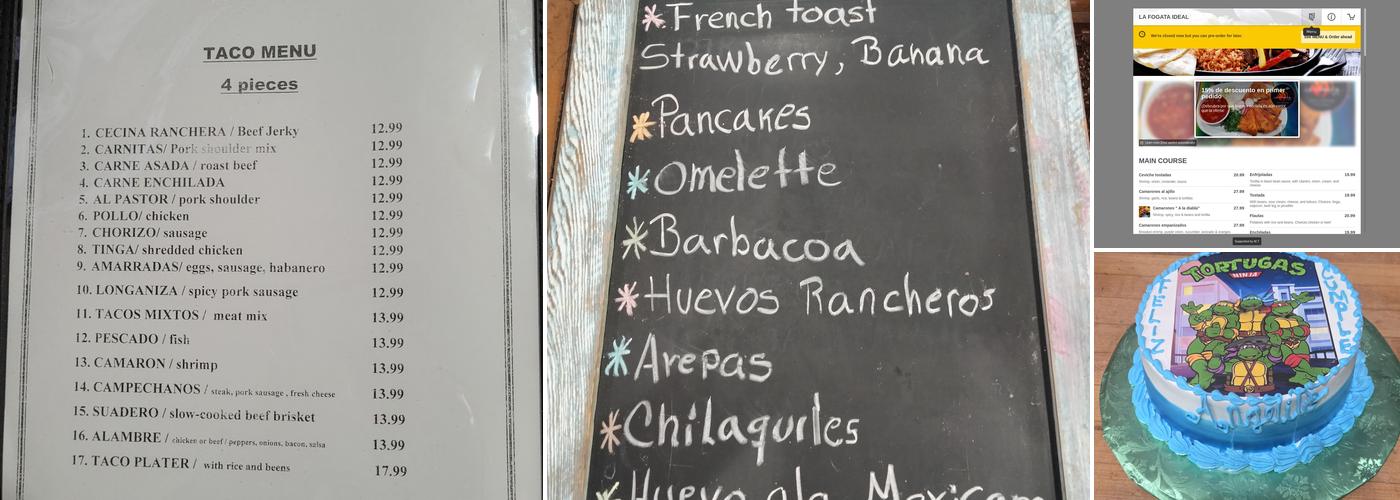 TACO MENU
4 pieces
1. CECINA RANCHERA / Beef Jerky 12.99
2. CARNITAS/ Pork shoulder mix 12.99
3. CARNE ASADA / roast beef 12.99
4. CARNE ENCHILADA 12.99
5. AL PASTOR / pork shoulder 12.99
6. POLLO/ chicken 12.99
7. CHORIZO/ sausage 12.99
8. TINGA/ shredded chicken 12.99
9. AMARRADAS/ eggs, sausage, habanero 12.99
10. LONGANIZA / spicy pork sausage 12.99
11. TACOS MIXTOS / meat mix 13.99
12. PESCADO / fish 13.99
13. CAMARON / shrimp 13.99
14. CAMPECHANOS / steak, pork sausage , fresh cheese 13.99
15. SUADERO / slow-cooked beef brisket 13.99
16. ALAMBRE / chicken or beef / peppers, onions, bacon, salsa 13.99
17. TACO PLATER / with rice and beens 17.99
*French toast
Strawberry, Banana
*Pancakes
*Omelette
*Barbacoa
*Huevos Rancheros
*Arepas
*Chilaquiles
Huevo ala Mexicana
LA FOGATA IDEAL
We're closed now but you can pre-order for later.
MENU & Order ahead
Menu
15% de descuento en primer
pedido
MAIN COURSE
Ceviche tostadas 20.99
Shrimp, onion, coriander, sauce
Camarones al ajillo 27.99
Shrimp, garlic, rice, beans & tortillas
Camarones " A la diabla" 27.99
Shrimp, spicy, rice & beans and tortilla
Camarones empanizados 27.99
Enfrijoladas 19.99
Tostada 19.99
Flautas 20.99
Enchiladas 19.99
TORTUGAS
NINJA
FELIZ
CUMPLE